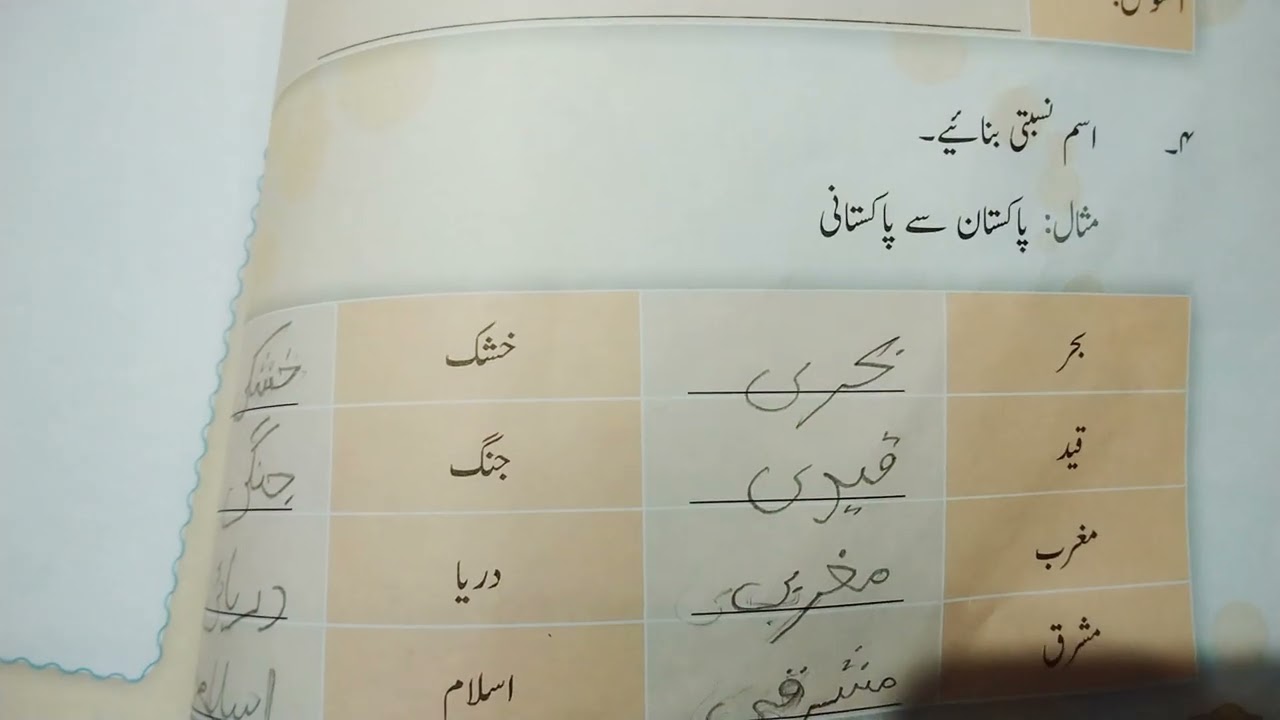 ۴۔ اسم نسبتی بنائیے۔
مثال: پاکستان سے پاکستانی
بحر بحری خشک خشک
قید قیدی جنگ جنگ
مغرب مغربی دریا دریائ
مشرق مشرقی اسلام اسلام